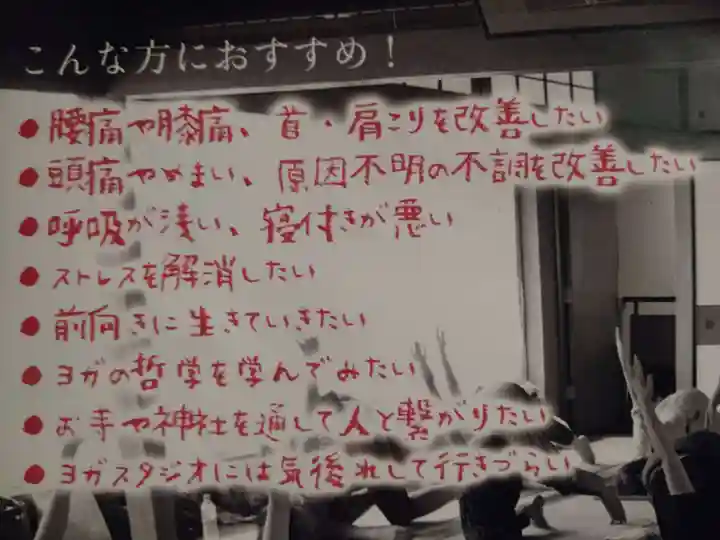 こんな方におすすめ！
●腰痛や膝痛、首・肩こりを改善したい
●頭痛やめまい、原因不明の不調を改善したい
●呼吸が浅い、寝付きが悪い
●ストレスを解消したい
●前向きに生きていきたい
●ヨガの哲学を学んでみたい
●お寺や神社を通して人と繋がりたい
●ヨガスタジオには気後れして行きづらい